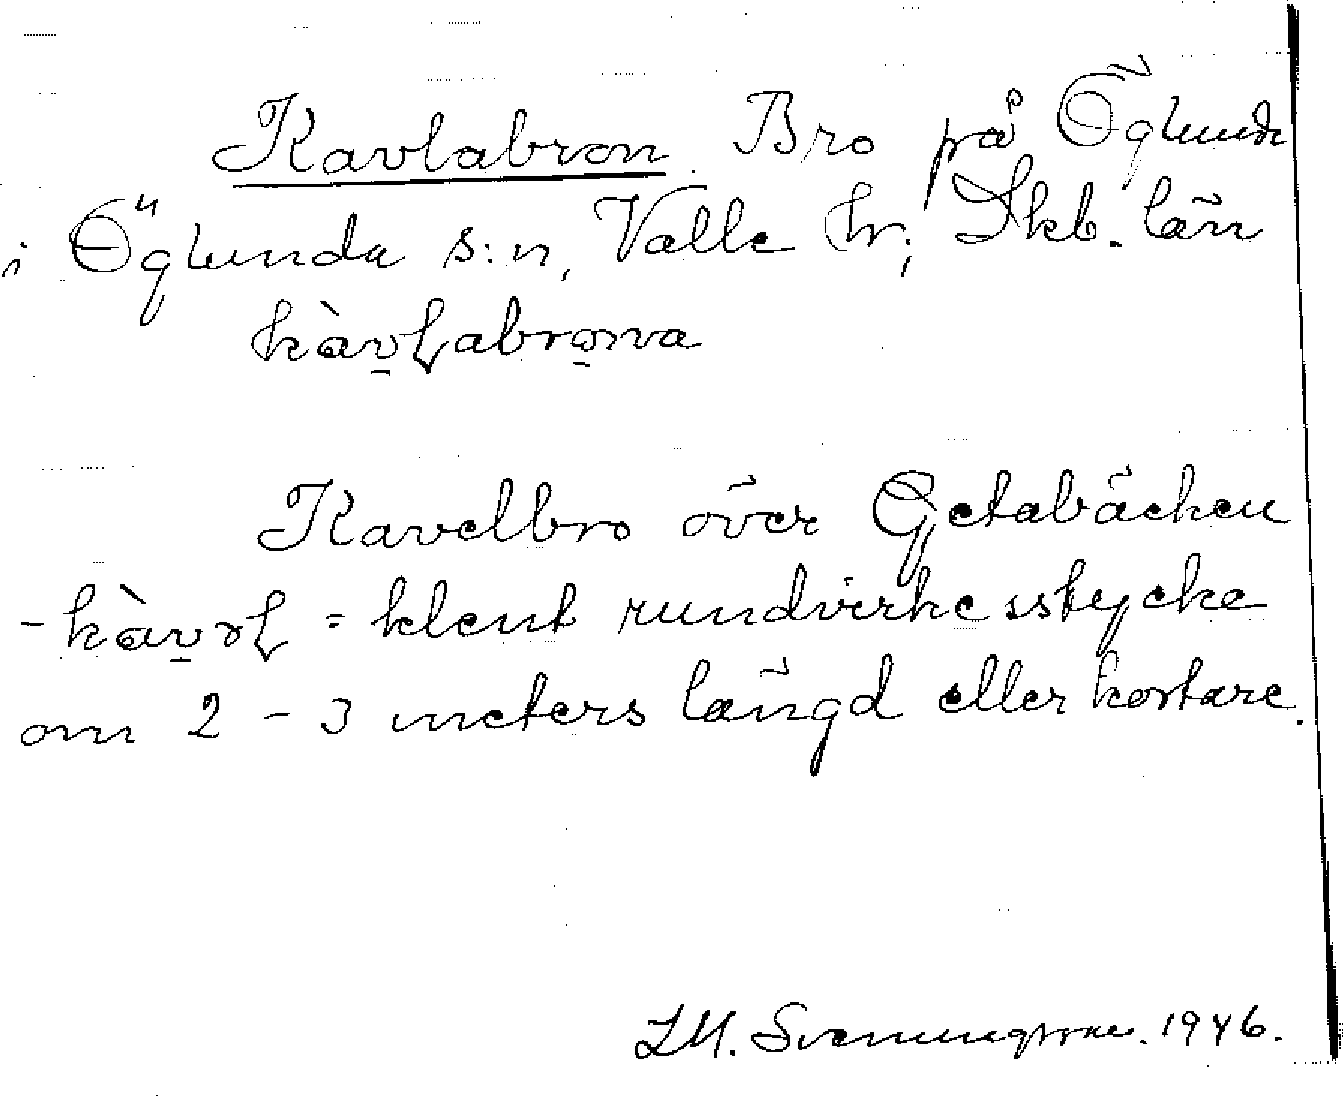 Kavlabron. Bro på Öglunda
i Öglunda s:n, Valle hr, Skb. län
kàv̱ɭabro̱na
Kavelbro över Getabäcken
- kàv̱əɭ = klent rundvirkesstycke
om 2 - 3 meters längd eller kortare.
LM. Svenungsson. 1946.